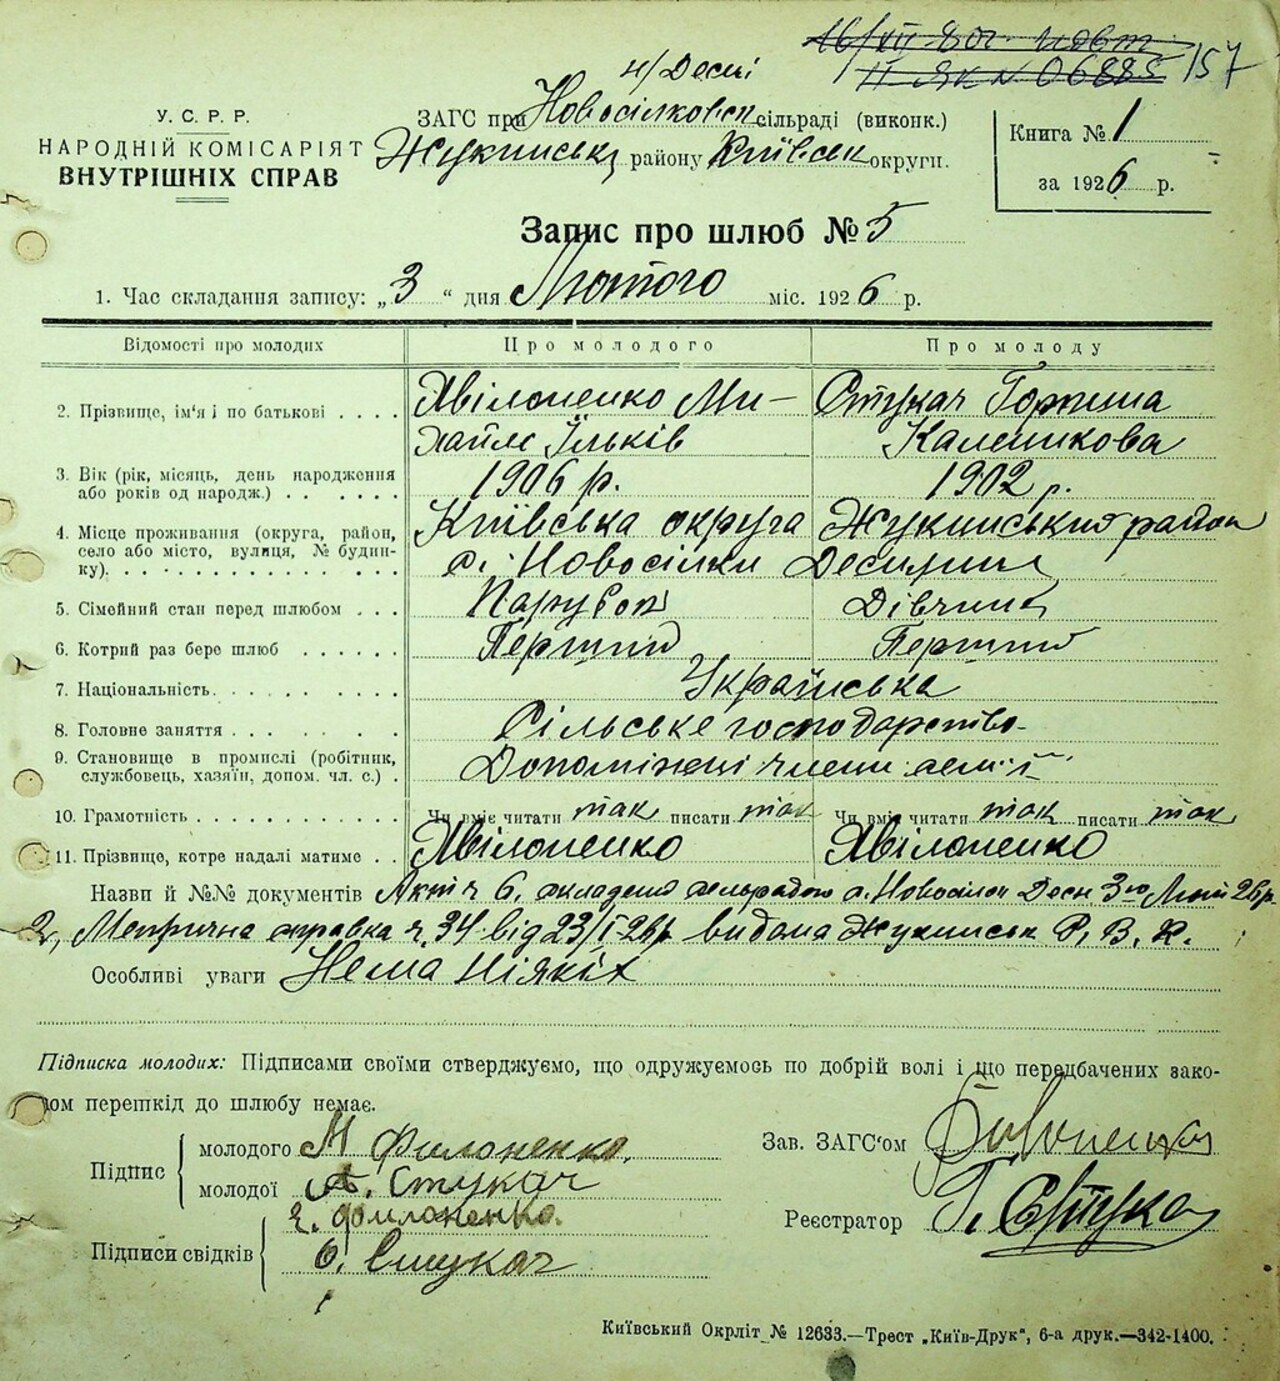 16/VII 80г.
II ЯК № 06885 157
н/Десні
У. С. Р. Р.
НАРОДНІЙ КОМІСАРІЯТ
ВНУТРІШНІХ СПРАВ
ЗАГС при Новосілковск сільраді (виконк.)
Жукинськ району Київськ округи.
Книга № 1
за 1926 р.
Запис про шлюб № 5
1. Час складання запису: „3“ дня Лютого міс. 1926 р.
Відомості про молодих Про молодого Про молоду
2. Прізвище, ім'я і по батькові . . . . Хвілоненко Ми- Стукач Горпина
хайло Їльків Каленикова
3. Вік (рік, місяць, день народження 1906 р. 1902 р.
або років од народж.) . . . . . .
4. Місце проживання (округа, район, Київська округа Жукинський район
село або місто, вулиця, № будин- с. Новосілки Деснянки
ку). . . . . . . . . . . . .
5. Сімейний стан перед шлюбом . . . Парубок Дівчина
6. Котрий раз бере шлюб . . . . . . Перший Перший
7. Національність. . . . . . . . . Українська
8. Головне заняття . . . . . . . Сільське господарство.
9. Становище в промислі (робітник, Допоміжні члени сем'ї
службовець, хазяїн, допом. чл. с.) .
10. Грамотність . . . . . . . . . . . . Чи вміє читати так писати так Чи вміє читати так писати так
11. Прізвище, котре надалі матиме . . Хвілоненко Хвілоненко
Назви й №№ документів Акт ч 6. складено сельрадою с. Новосілок Десн 3го Лют 26 р.
2, Метрична справка ч. 34 від 23/I-26 р. видана Жукинськ Р. В. К.
Особливі уваги Нема ніякіх
Підписка молодих: Підписами своїми стверджуємо, що одружуємось по добрій волі і що передбачених зако-
ном перешкід до шлюбу немає.
Підпис
молодого М Филоненко.
молодої А. Стукач
Зав. ЗАГС'ом
Підписи свідків
Є. Филоненко.
О. Стукач
Реєстратор Г. Стукач
Київський Окрліт № 12633.—Трест „Київ-Друк“, 6-а друк.—342-1400.